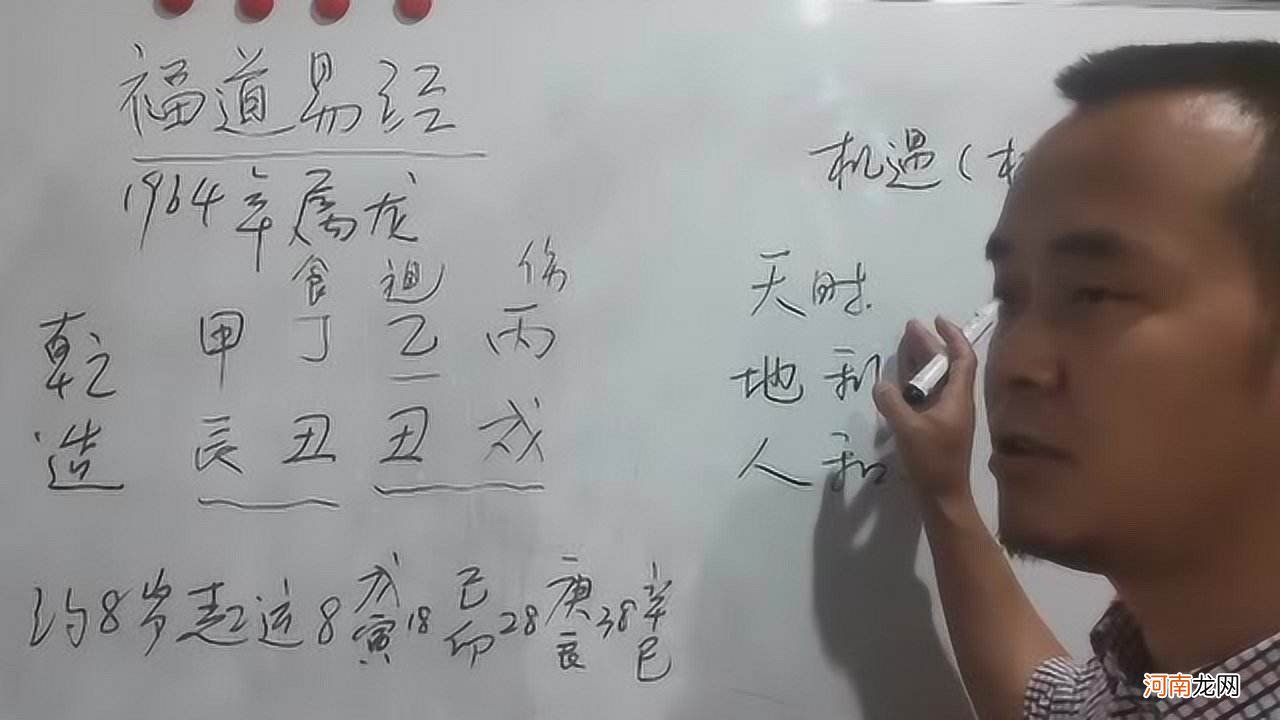 福道易经
1964年属龙
食 伤
乾 甲 丁 乙 丙
造 辰 丑 丑 戌
约8岁起运8戊寅18己卯28庚辰38辛巳
机遇(
天时
地利
人和
河南龙网